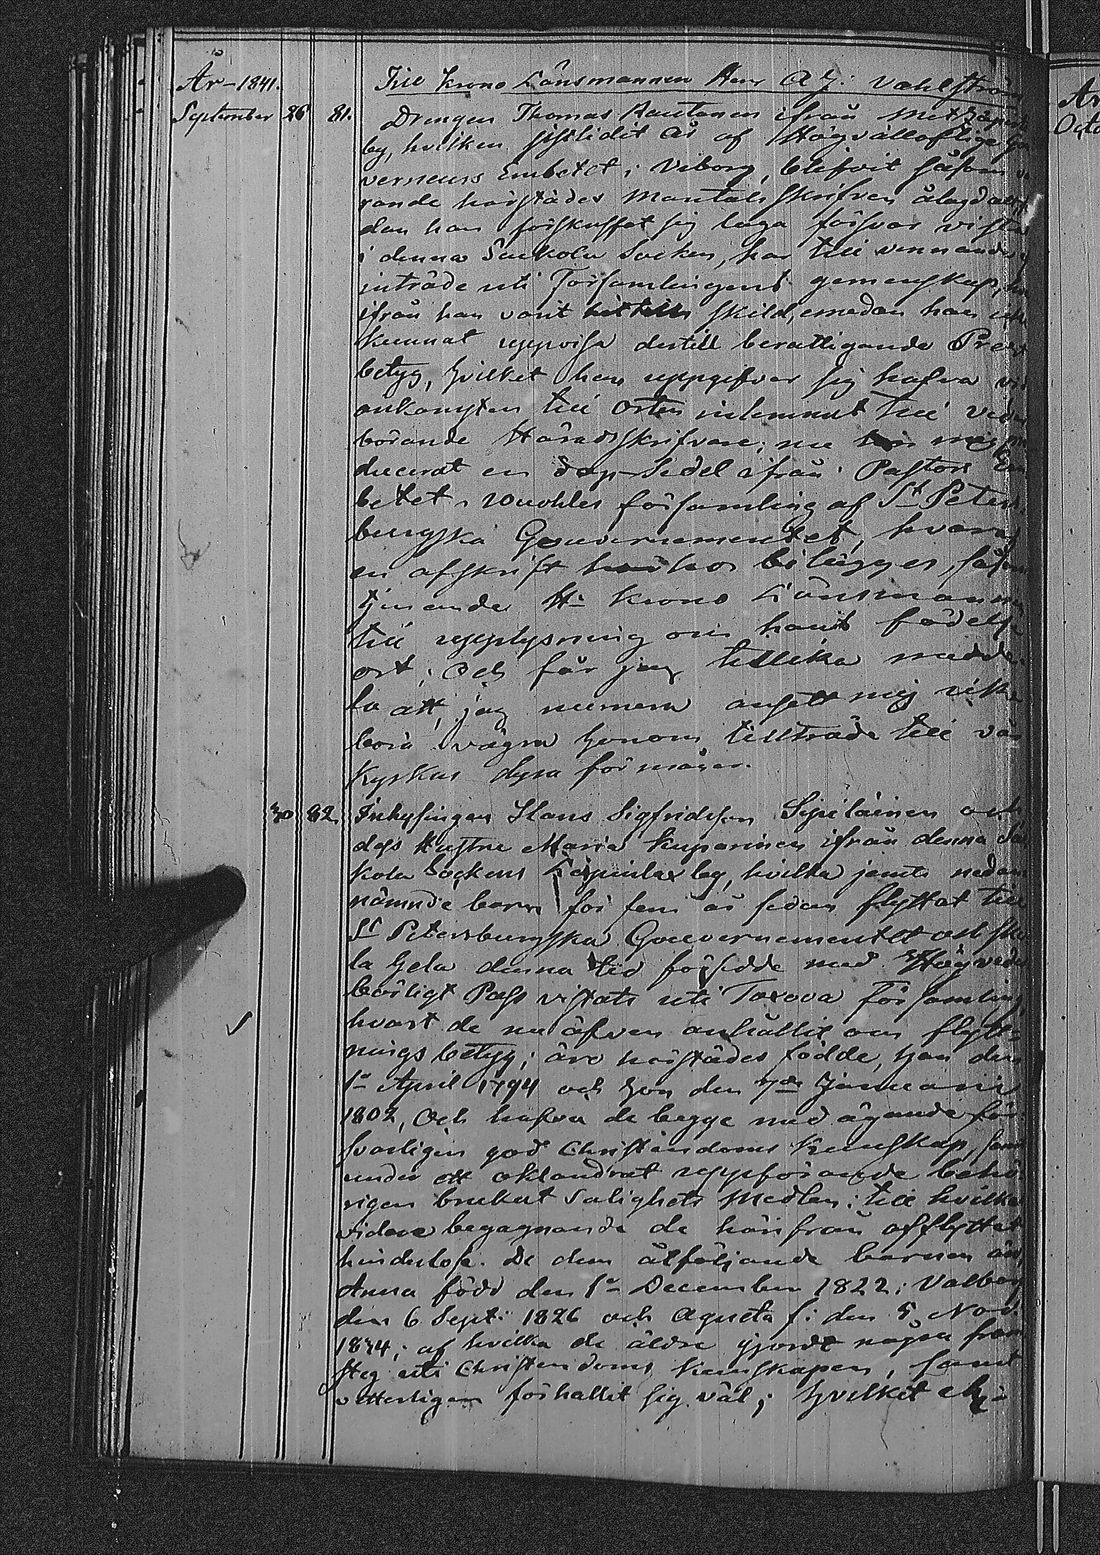 År 1841. Till Krono Länsmannen Herr A J: Vahlström
September 26 81. Drengen Thomas Rautanen ifrån
by, hvilken sistlidit år af Högvälloflige Gu
verneurs Embetet i Viborg, blifvit såsom va
rande härstädes Mantals skrifven ålagd att
dan han förskaffat sig laga försvar vistas
i denna Sakkola Socken, har till vinnande
inträde uti Församlingens gemenskap,
ifrån han varit hittills skild, emedan han icke
kunnat uppvisa dertill berättigande Prest
betyg, hvilket han uppgifver sig hafva vid
ankomsten till orten inlemnat till veder
börande Häradsskrifvare; nu mig pro
ducerat en dop-Sedel ifrån Pastors Em
betet i Wuohles församling af St Peters
burgska Gouvernementet, hvaraf
en afskrift hos bilägges, såsom
tjenande Hr Krono Länsmannen
till upplysning om hans födelse
ort. Och får jag tillika medde
la att jag numera ansett mig icke
böra vägra honom tillträde till vår
Kyrkas dyra förmåner.
30 82. Inhysingen Hans Sigfridsson Sipiläinen och
dess Hustru Maria Kuparinen ifrån denna Sak
kola Sockens by, hvilka jemte nedan
nämnde barn för fem år sedan flyttat till
St Petersburgska Gouvernementet och sko
la hela denna tid försedde med Högveder
börligt Pass vistats uti Toxova Församling
hvart de nu äfven anhållit om flytt-
nings betyg; äro härstädes födde, han den
1a April 1794 och hon den 7de Januarii
1802, Och hafva de begge med ägande för-
svarligen god Christendoms Kunskap, samt
under ett oklandrat uppförande behö
rigen brukat Salighets Medlen: till hvilkas
vidare begagnande de härifrån afflyttat
hinderlöse. De dem åtföljande barnen äro
Anna född den 1a December 1822; Valborg
den 6 Sept: 1826 och Agneta f: den 5 Nov:
1834; af hvilka de äldre gjordt några fram
steg uti Christendoms Kunskapen, samt
vetterligen förhållit sig väl; hvilket